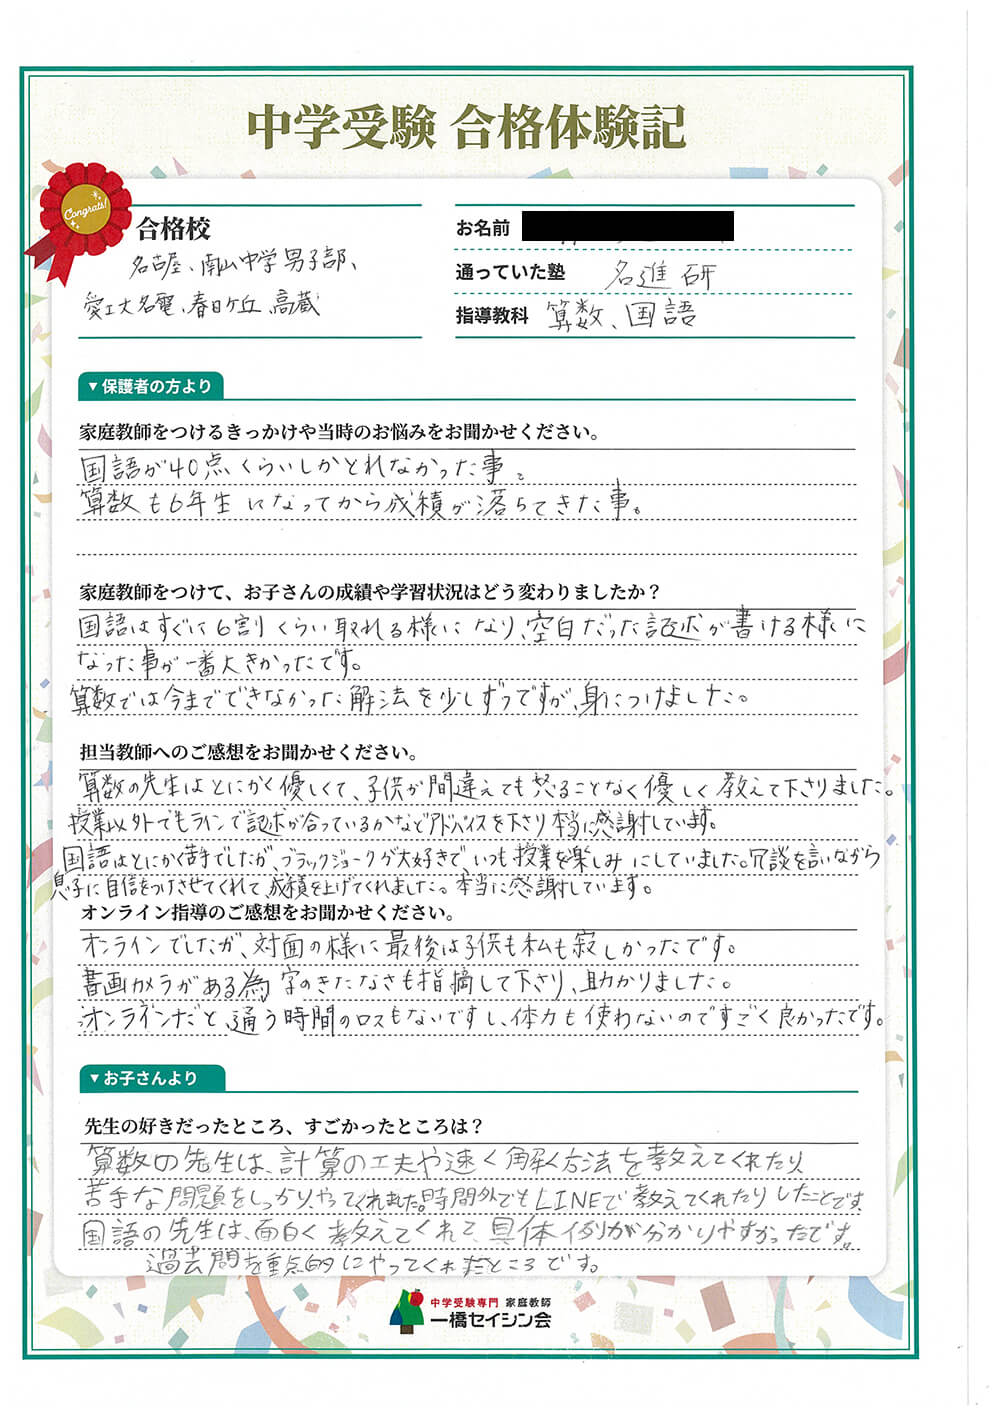 中学受験 合格体験記
Congrats!
合格校
名古屋、南山中学男子部、
愛工大名電、春日ケ丘、高蔵
お名前
通っていた塾 名進研
指導教科 算数、国語
▼保護者の方より
家庭教師をつけるきっかけや当時のお悩みをお聞かせください。
国語が40点くらいしかとれなかった事。
算数も6年生になってから成積が落ちてきた事。
家庭教師をつけて、お子さんの成績や学習状況はどう変わりましたか？
国語はすぐに6割くらい取れる様になり、空白だった記述が書ける様に
なった事が一番大きかったです。
算数では今までできなかった解法を少しずつですが、身につけました。
担当教師へのご感想をお聞かせください。
算数の先生はとにかく優しくて、子供が間違えても怒ることなく優しく教えて下さりました。
授業以外でもラインで記述が合っているかなどアドバイスを下さり本当に感謝しています。
国語はとにかく苦手でしたが、ブラックジョークが大好きで、いつも授業を楽しみにしていました。冗談を言いながら
息子に自信をつけさせてくれて、成積を上げてくれました。本当に感謝しています。
オンライン指導のご感想をお聞かせください。
オンラインでしたが、対面の様に最後は子供も私も寂しかったです。
書画カメラがある為、字のきたなさも指摘して下さり、助かりました。
オンラインだと、通う時間のロスもないですし、体力も使わないのですごく良かったです。
▼お子さんより
先生の好きだったところ、すごかったところは？
算数の先生は、計算の工夫や速く解く方法を教えてくれたり
苦手な問題をしっかりやってくれました。時間外でもLINEで教えてくれたりしたことです
国語の先生は、面白く教えてくれて、具体例が分かりやすかったです。
過去問を重点的にやってくれたところです。
中学受験専門 家庭教師
一橋セイシン会